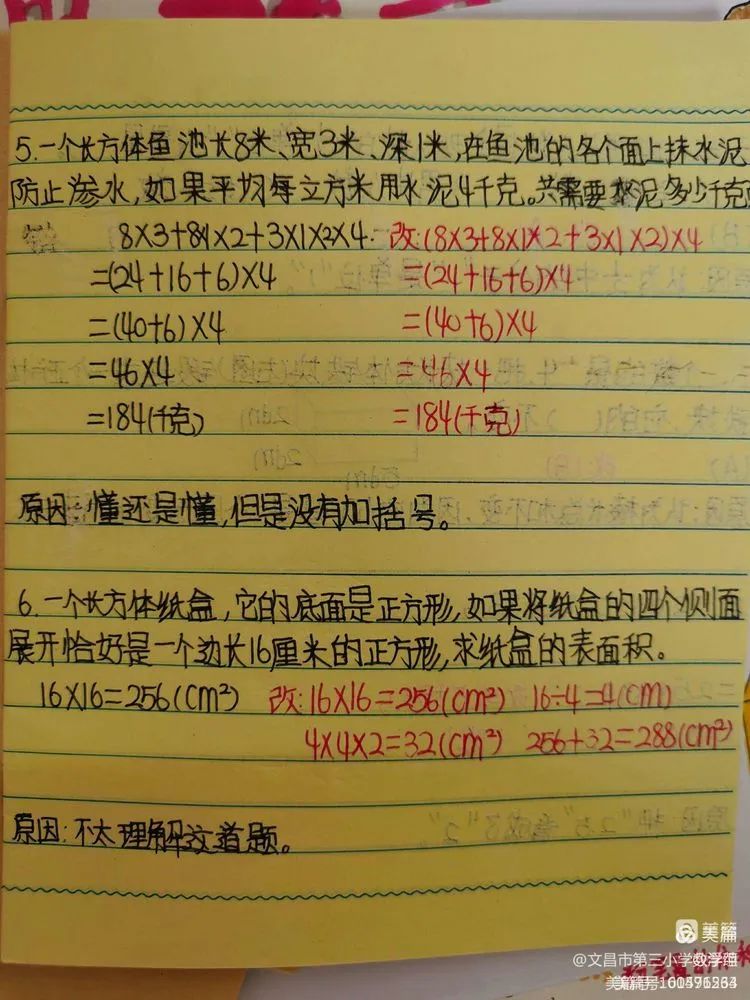 5.一个长方体鱼池长8米、宽3米、深1米,在鱼池的各个面上抹水泥
防止渗水,如果平均每立方米用水泥4千克。共需要水泥多少千克
8×3+8×1×2+3×1×2×4. 改:(8×3+8×1×2+3×1×2)×4
=(24+16+6)×4 =(24+16+6)×4
=(40+6)×4 =(40+6)×4
=46×4 =46×4
=184(千克) =184(千克)
原因:懂还是懂,但是没有加括号。
6.一个长方体纸盒,它的底面是正方形,如果将纸盒的四个侧面
展开恰好是一个边长16厘米的正方形,求纸盒的表面积。
16×16=256(cm²) 改:16×16=256(cm²) 16÷4=4(cm)
4×4×2=32(cm²) 256+32=288(cm²)
原因:不太理解这道题。
美篇
@文昌市第三小学数学组